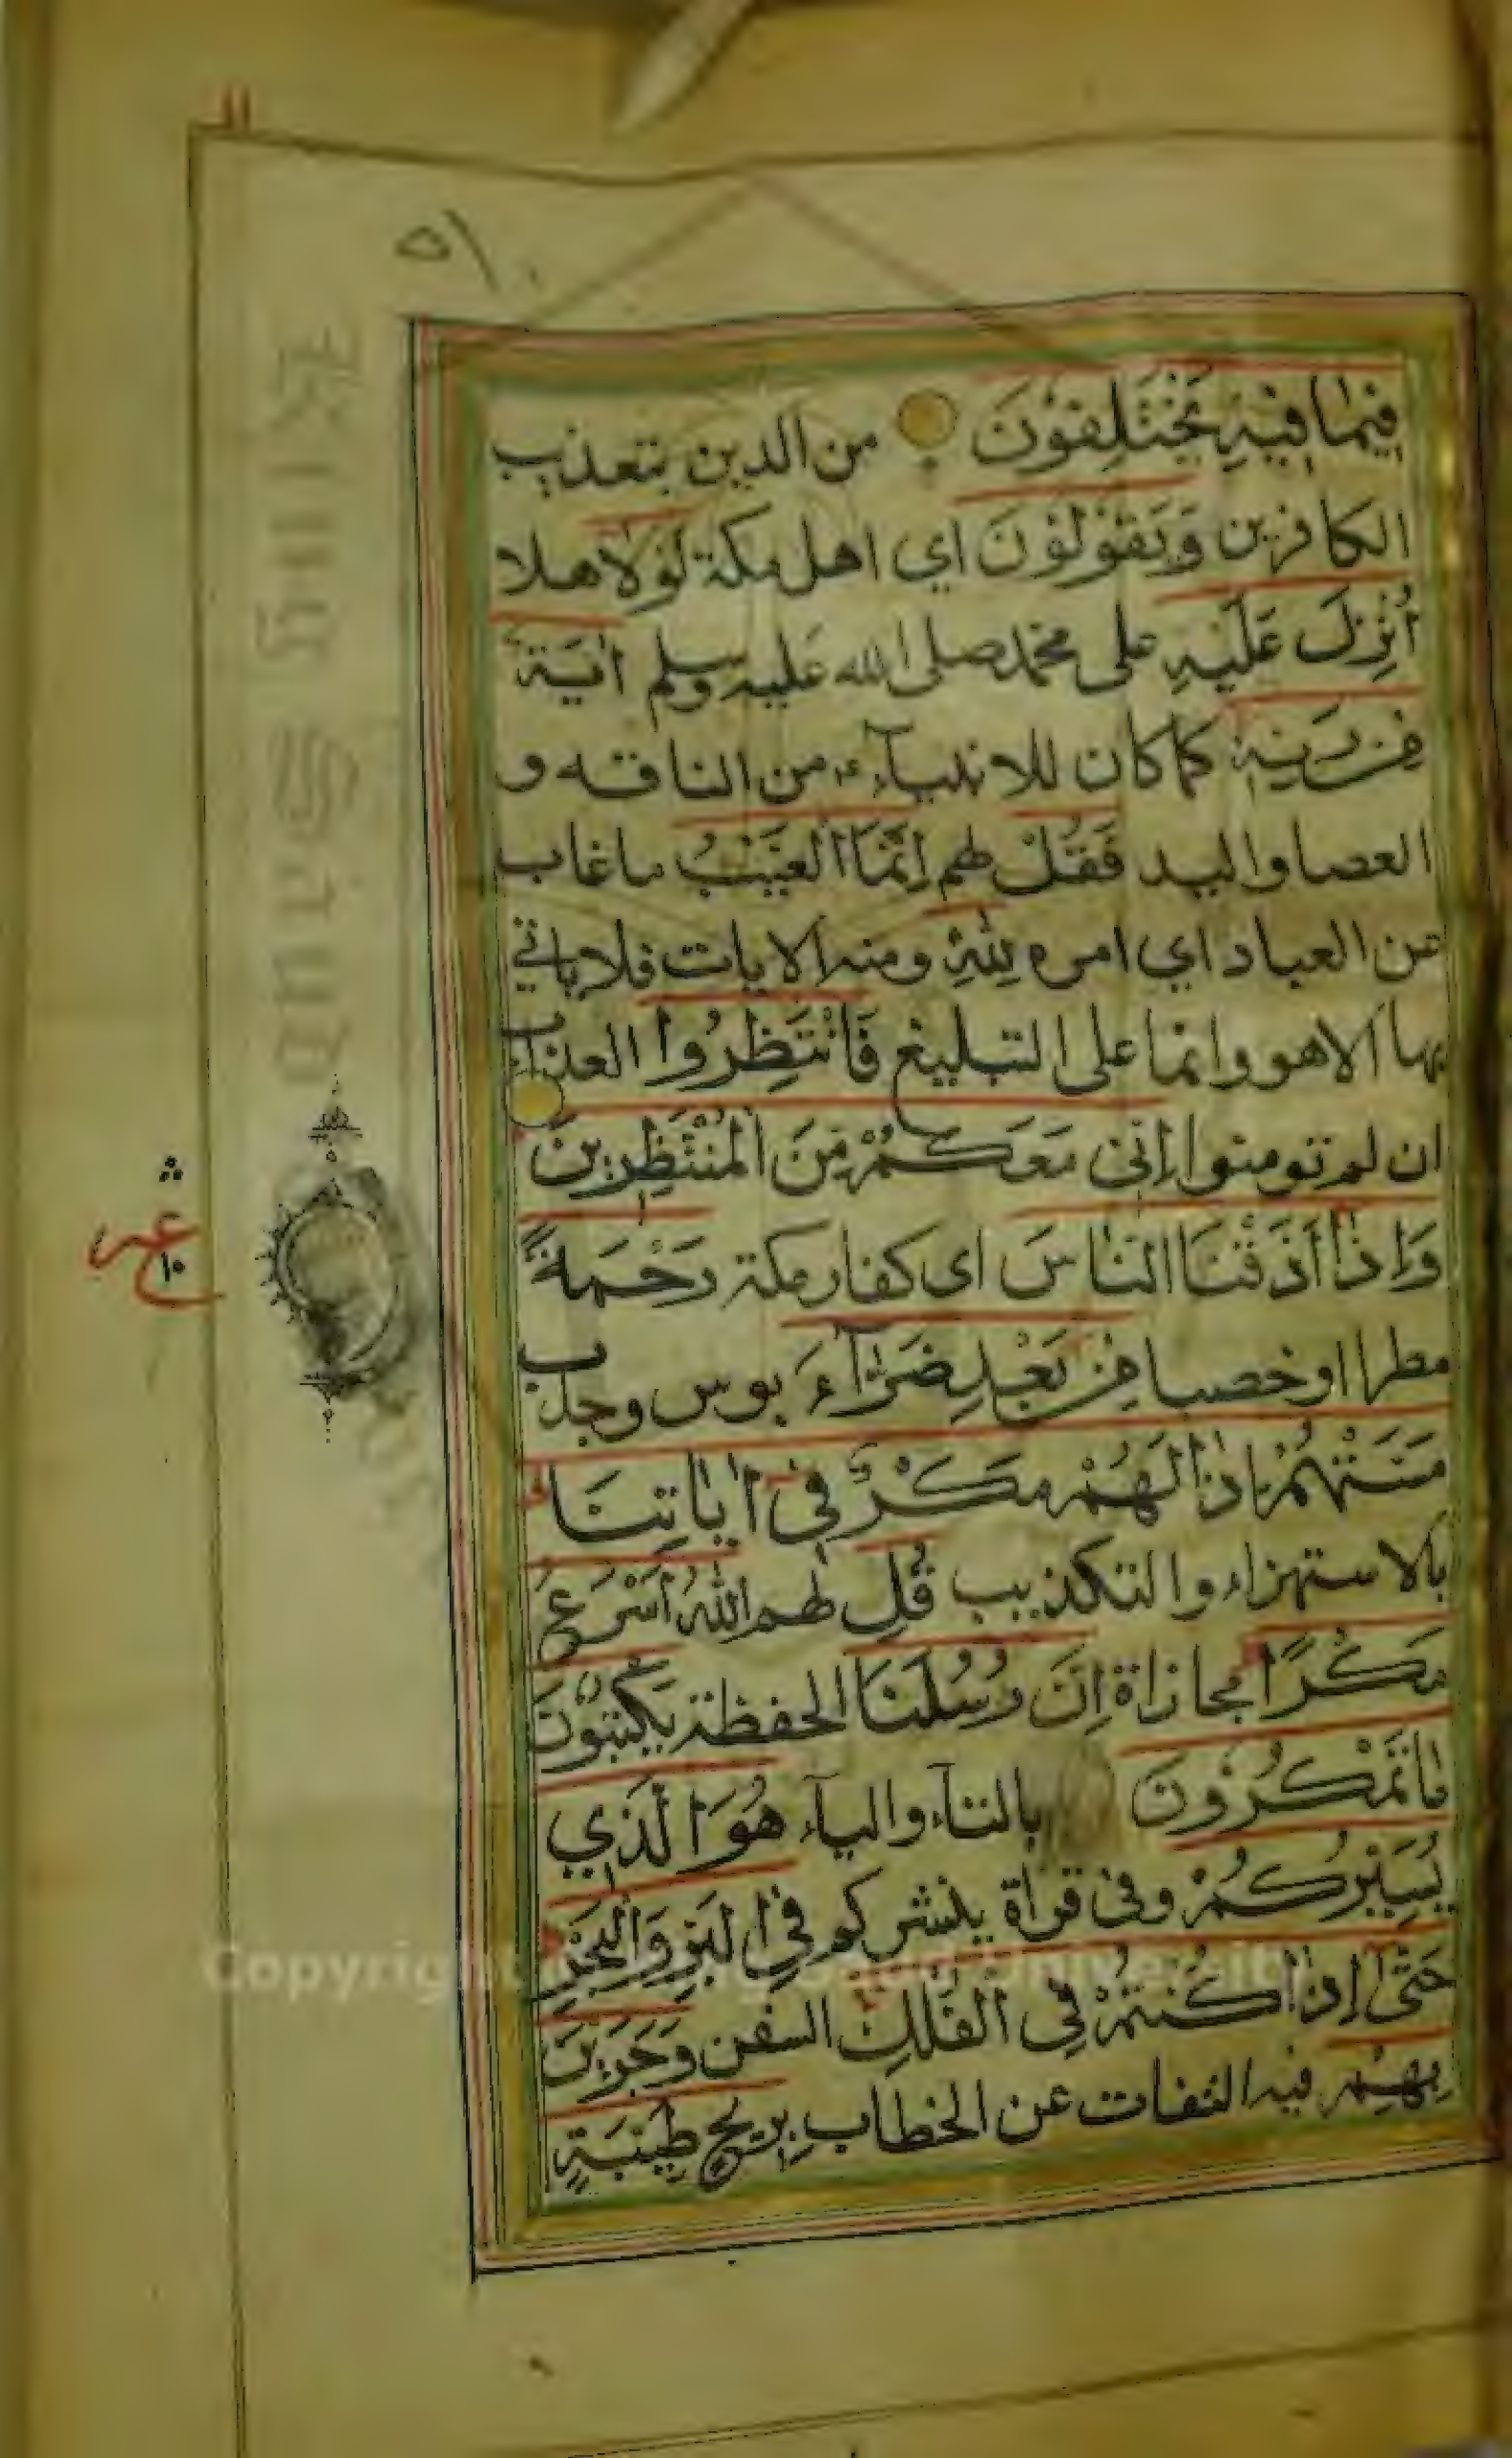 فِيمَا فِيْهِ يَخْتَلِفُوْنَ من الدين بتعذيب
الكافرين وَيَقُوْلُوْنَ اي اهل مكة لَوْلَا هلا
أُنْزِلَ عَلَيْهِ على محمد صلى الله عليه وسلم اٰيَةٌ
مِنْ رَبِّهٖ كما كان للانبيآء من الناقه و
العصا واليد فَقُلْ لهم اِنَّمَا الْغَيْبُ ما غاب
عن العباد اي امره لِلّٰهِ ومنه الايات فلا ياتي
بها الا هو وانما على التبليغ فَانْتَظِرُوا العذاب
ان لم تومنوا اِنِّي مَعَكُمْ مِنَ الْمُنْتَظِرِينَ
وَاِذَا اَذَقْنَا النَّاسَ اى كفار مكة رَحْمَةً
مطرا او خصبا مِنْ بَعْدِ ضَرَّآءَ بوس وجدب
مَسَّتْهُمْ اِذَا لَهُمْ مَكْرٌ فِي اٰيَاتِنَا
بالاستهزاء والتكذيب قُلِ لهم اللّٰهُ اَسْرَعُ
مَكْرًا مجازاة اِنَّ رُسُلَنَا الحفظة يَكْتُبُوْنَ
مَا تَمْكُرُوْنَ بالتآء واليآء هُوَ الَّذِي
يُسَيِّرُكُمْ وفى قراة ينشركم فِي الْبَرِّ وَالْبَحْرِ
حَتّٰى اِذَا كُنْتُمْ فِي الْفُلْكِ السفن وَجَرَيْنَ
بِهِمْ فيه التفات عن الخطاب بِرِيْحٍ طَيِّبَةٍ
عشر
Copyright University